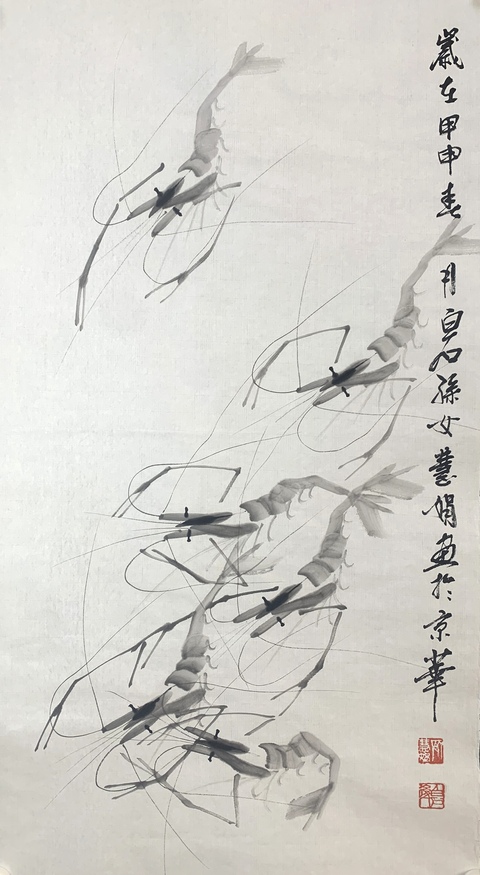 歲在甲申春月白石孫女慧娟画於京華